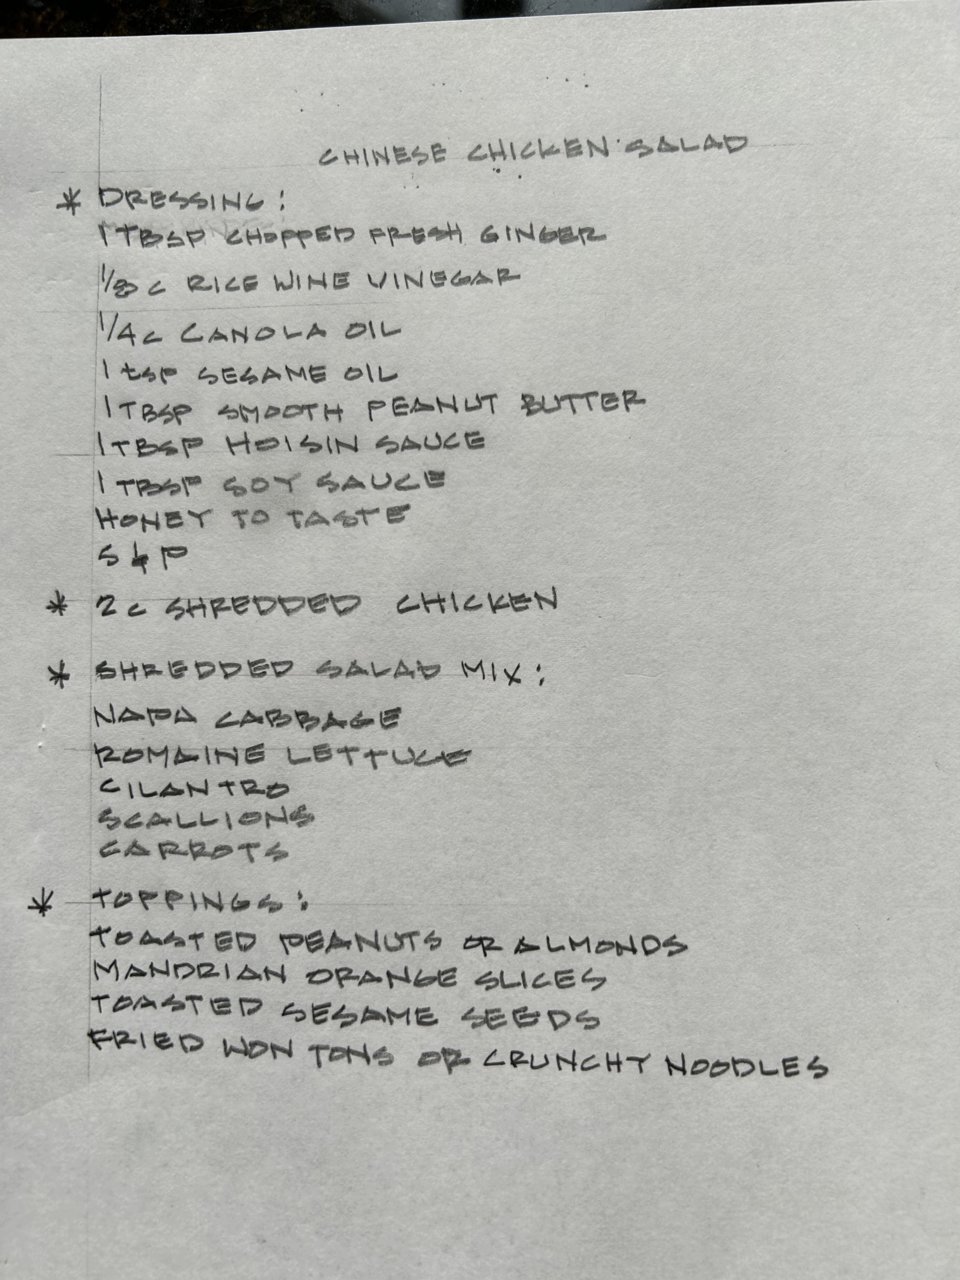 CHINESE CHICKEN SALAD
* DRESSING:
1 TBSP CHOPPED FRESH GINGER
1/8 C RICE WINE VINEGAR
1/4 C CANOLA OIL
1 tsp SESAME OIL
1 TBSP SMOOTH PEANUT BUTTER
1 TBSP HOISIN SAUCE
1 TBSP SOY SAUCE
HONEY TO TASTE
S & P
* 2 C SHREDDED CHICKEN
* SHREDDED SALAD MIX:
NAPA CABBAGE
ROMAINE LETTUCE
CILANTRO
SCALLIONS
CARROTS
* TOPPINGS:
TOASTED PEANUTS OR ALMONDS
MANDRIAN ORANGE SLICES
TOASTED SESAME SEEDS
FRIED WON TONS OR CRUNCHY NOODLES